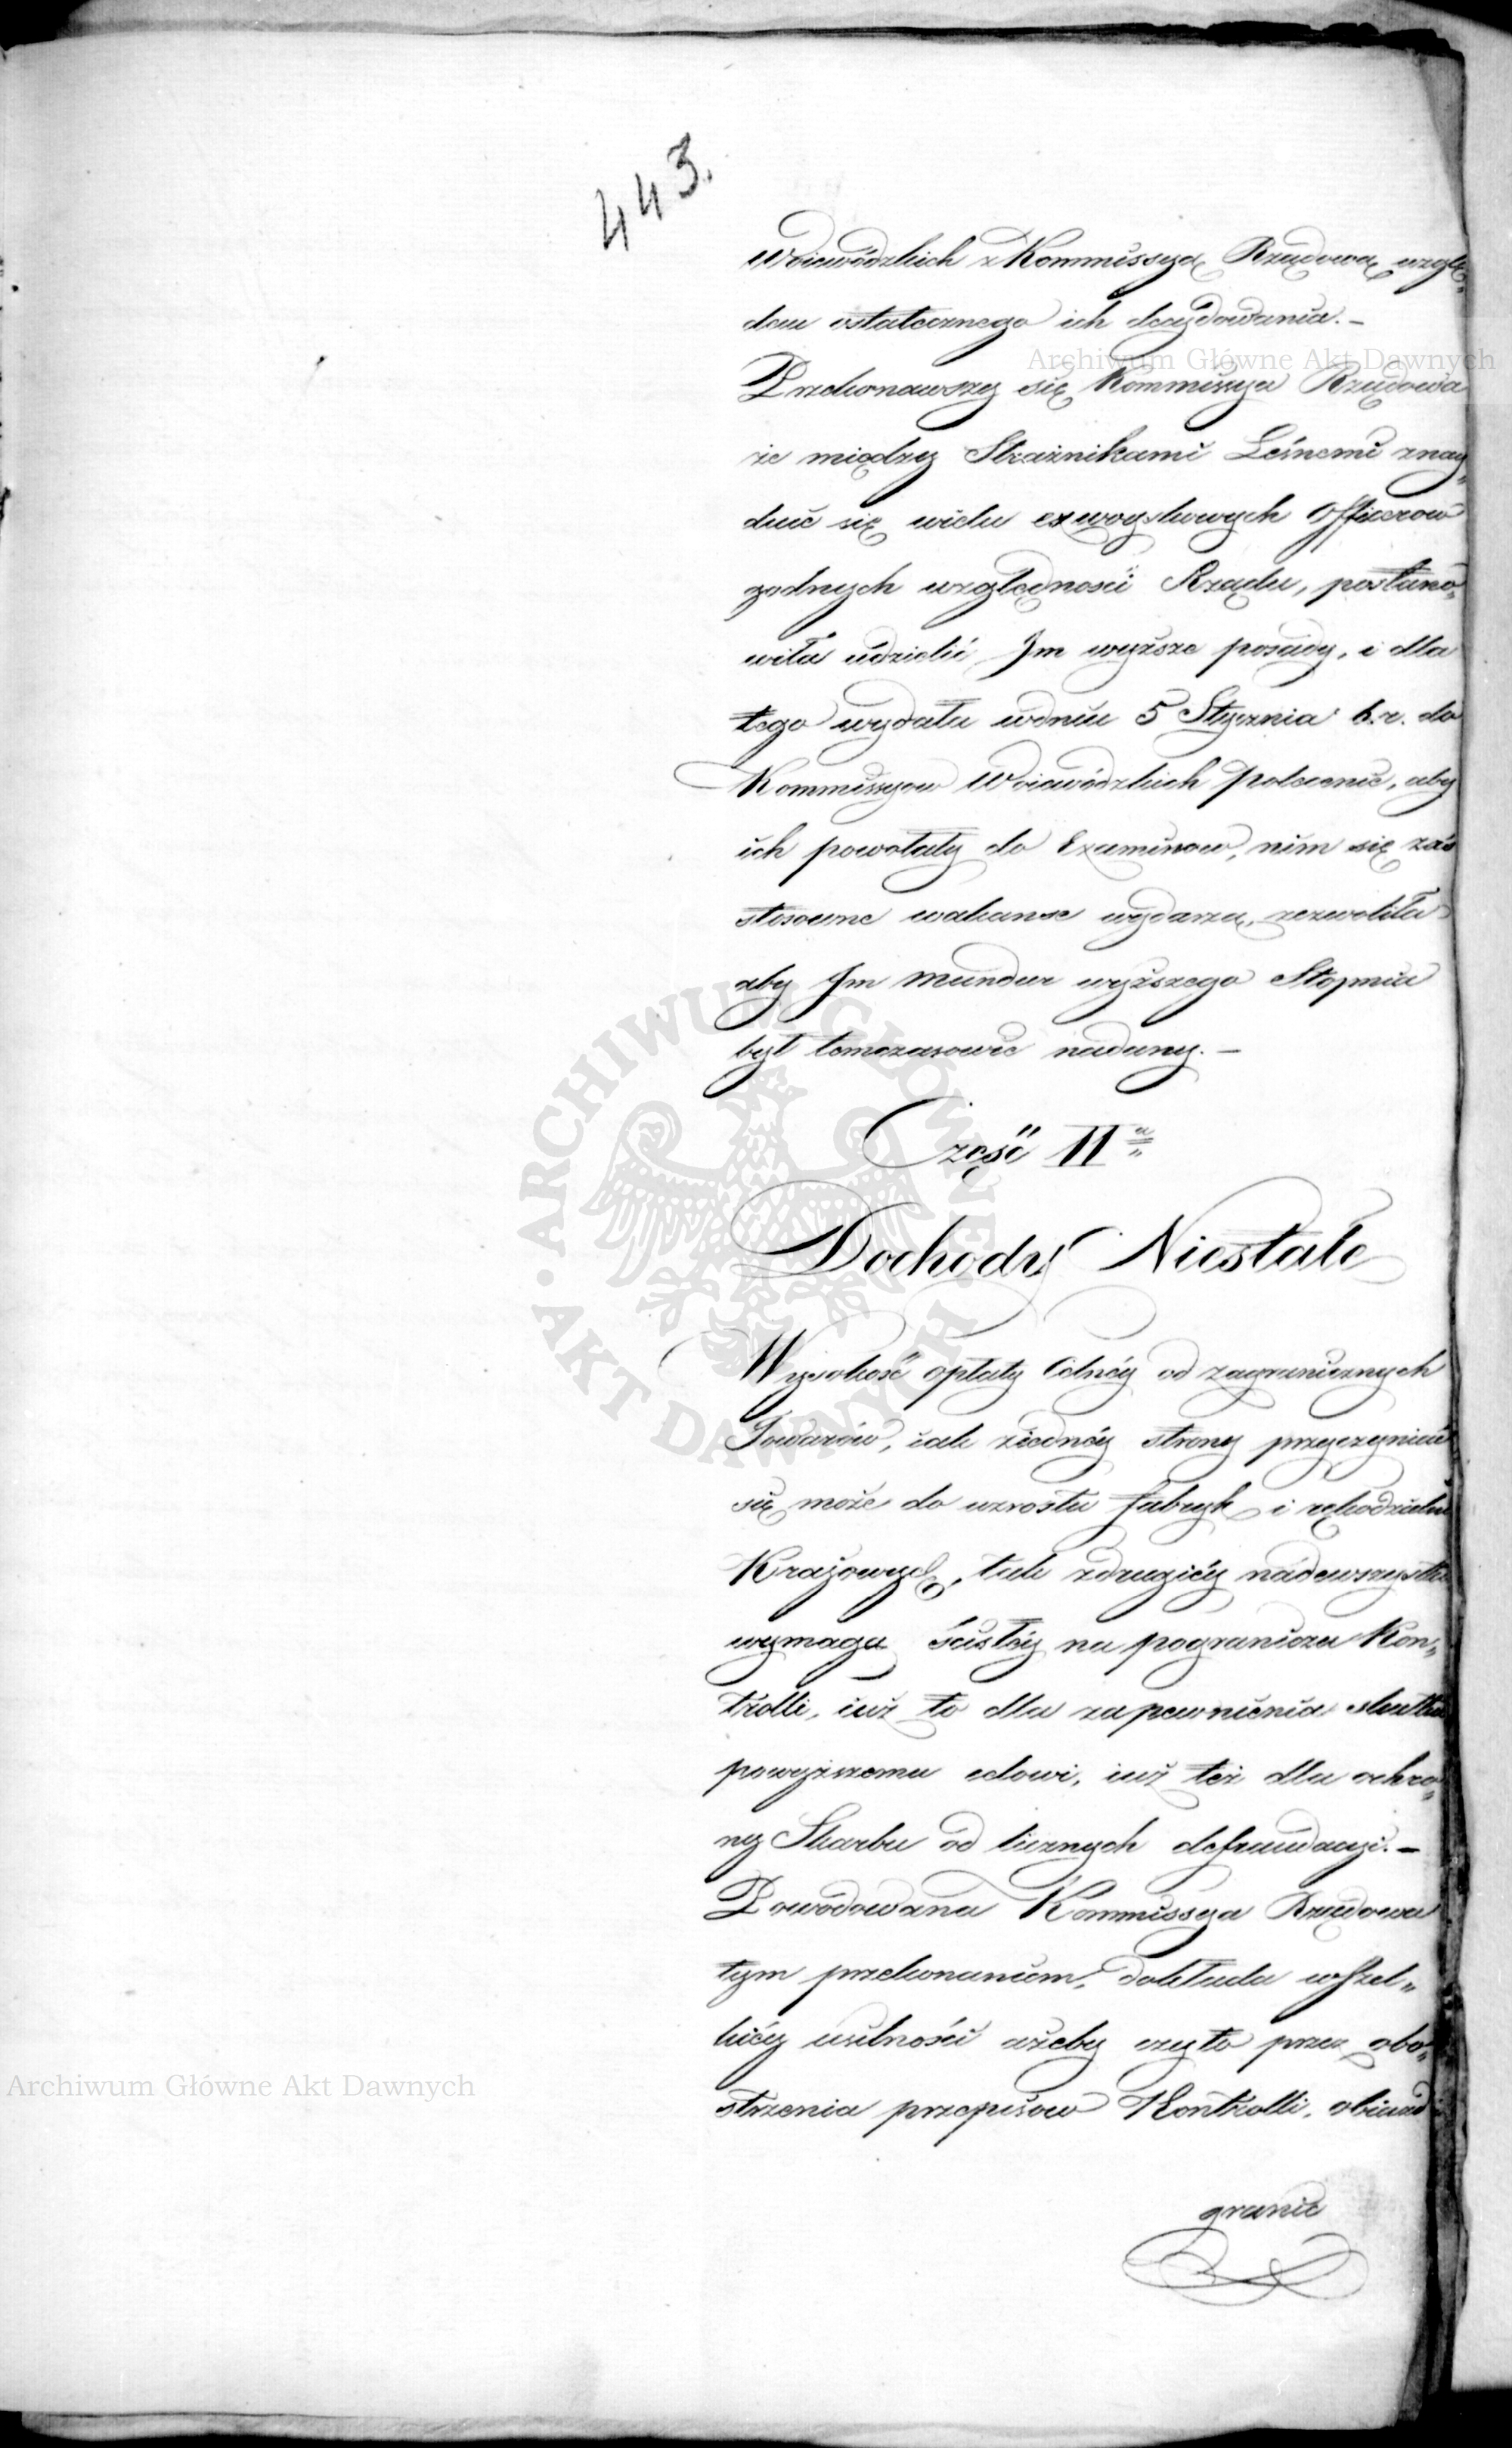 443.
Woiewódzkich z Kommissyą Rządową wzglę„
dem ostatecznego ich decydowania.—
Archiwum Główne Akt Dawnych
Przekonawszy się Kommissya Rządowa
że między Strażnikami Leśnemi znay„
duie się wielu exwoyskowych Officerow
godnych względności Rządu, postano„
wiła udzielić Im wyższe posady, i dla
tego wydała wdniu 5 Stycznia b.r. do
Kommissyow Woiewódzkich polecenie, aby
ich powołały do Examinow, nim się zaś
stosowne wakanse wydarzą, zezwoliła
aby Im Mundur wyższego Stopnia
był tomczasowie nadany.—
ARCHIWUM GŁÓWNE AKT DAWNYCH
Część IIa
Dochody Niestałe
Wysokość opłaty Celnéy od zagranicznych
Towarów, iak ziednéy strony przyczynić
się może do wzrostu fabryk i rękodzieln
Kraiowych, tak zdrugiéy nadewszystko
wymaga ścisłéy na pograniczu Kon„
trolli, iuż to dla zapewnienia skutku
powyższemu celowi, iuż też dla ochro„
ny Skarbu od licznych defraudacyi.—
Powodowana Kommissya Rządowa
tym przekonaniem, dokłada wszel„
kiéy usilności ażeby czyto przez obo„
Archiwum Główne Akt Dawnych
strzenia przepisow Kontrolli, obiaśń
granic